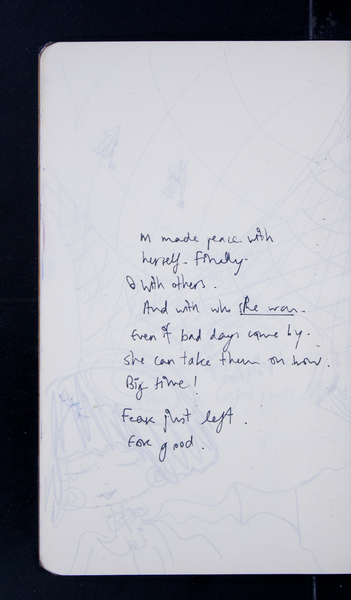 M made peace with
herself. Finally.
& with others.
And with who she was.
Even if bad days come by.
She can take them on now.
Big time!
Fear just left.
For good.